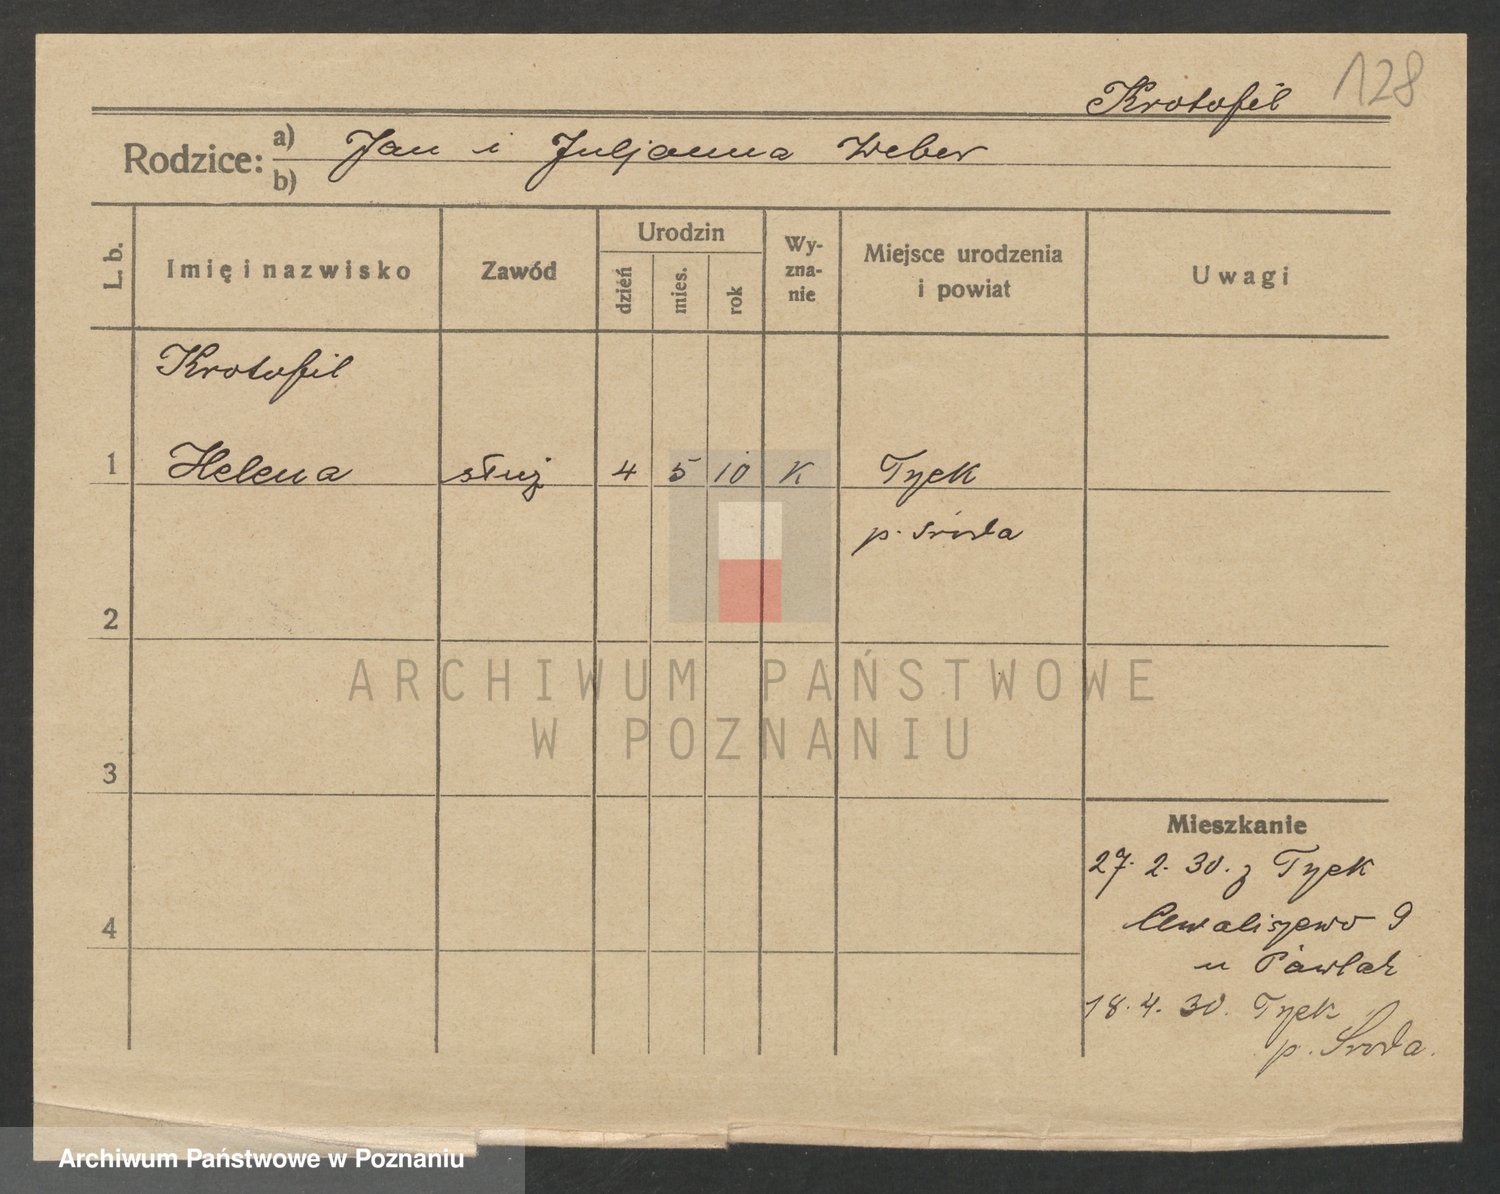 Krotofil 128
Rodzice: a) Jan i Juljanna Weber
b)
L. b. Imię i nazwisko Zawód Urodzin dzień mies. rok Wy-zna-nie Miejsce urodzenia i powiat Uwagi
Krotofil
1 Helena służ 4 5 10 K Tyek
p. środa
2
ARCHIWUM PAŃSTWOWE
W POZNANIU
3
Mieszkanie
27. 2. 30. z Tyek
Chwaliszewo 9
4
u Pawlak
18. 4. 30. Tyek
p. Środa.
Archiwum Państwowe w Poznaniu